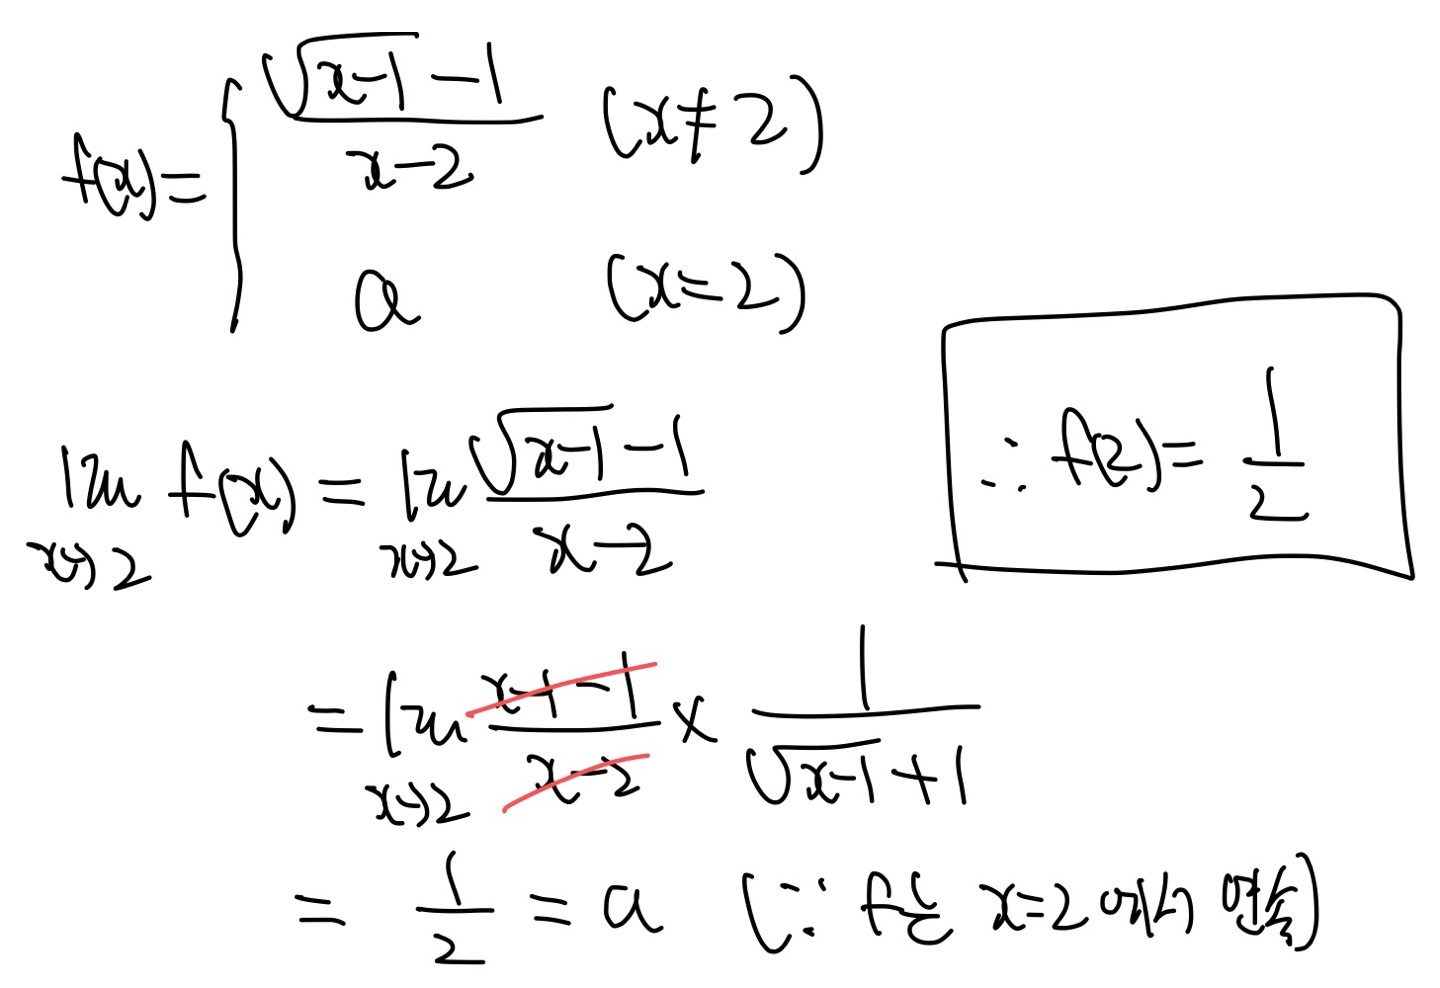 f(x) = { (√(x-1) - 1)/(x-2) (x≠2)
a (x=2)
lim_{x→2} f(x) = lim_{x→2} (√(x-1) - 1)/(x-2)
= lim_{x→2} (x-1-1)/(x-2) × 1/(√(x-1) + 1)
= 1/2 = a (∵ f는 x=2 에서 연속)
∴ f(2) = 1/2